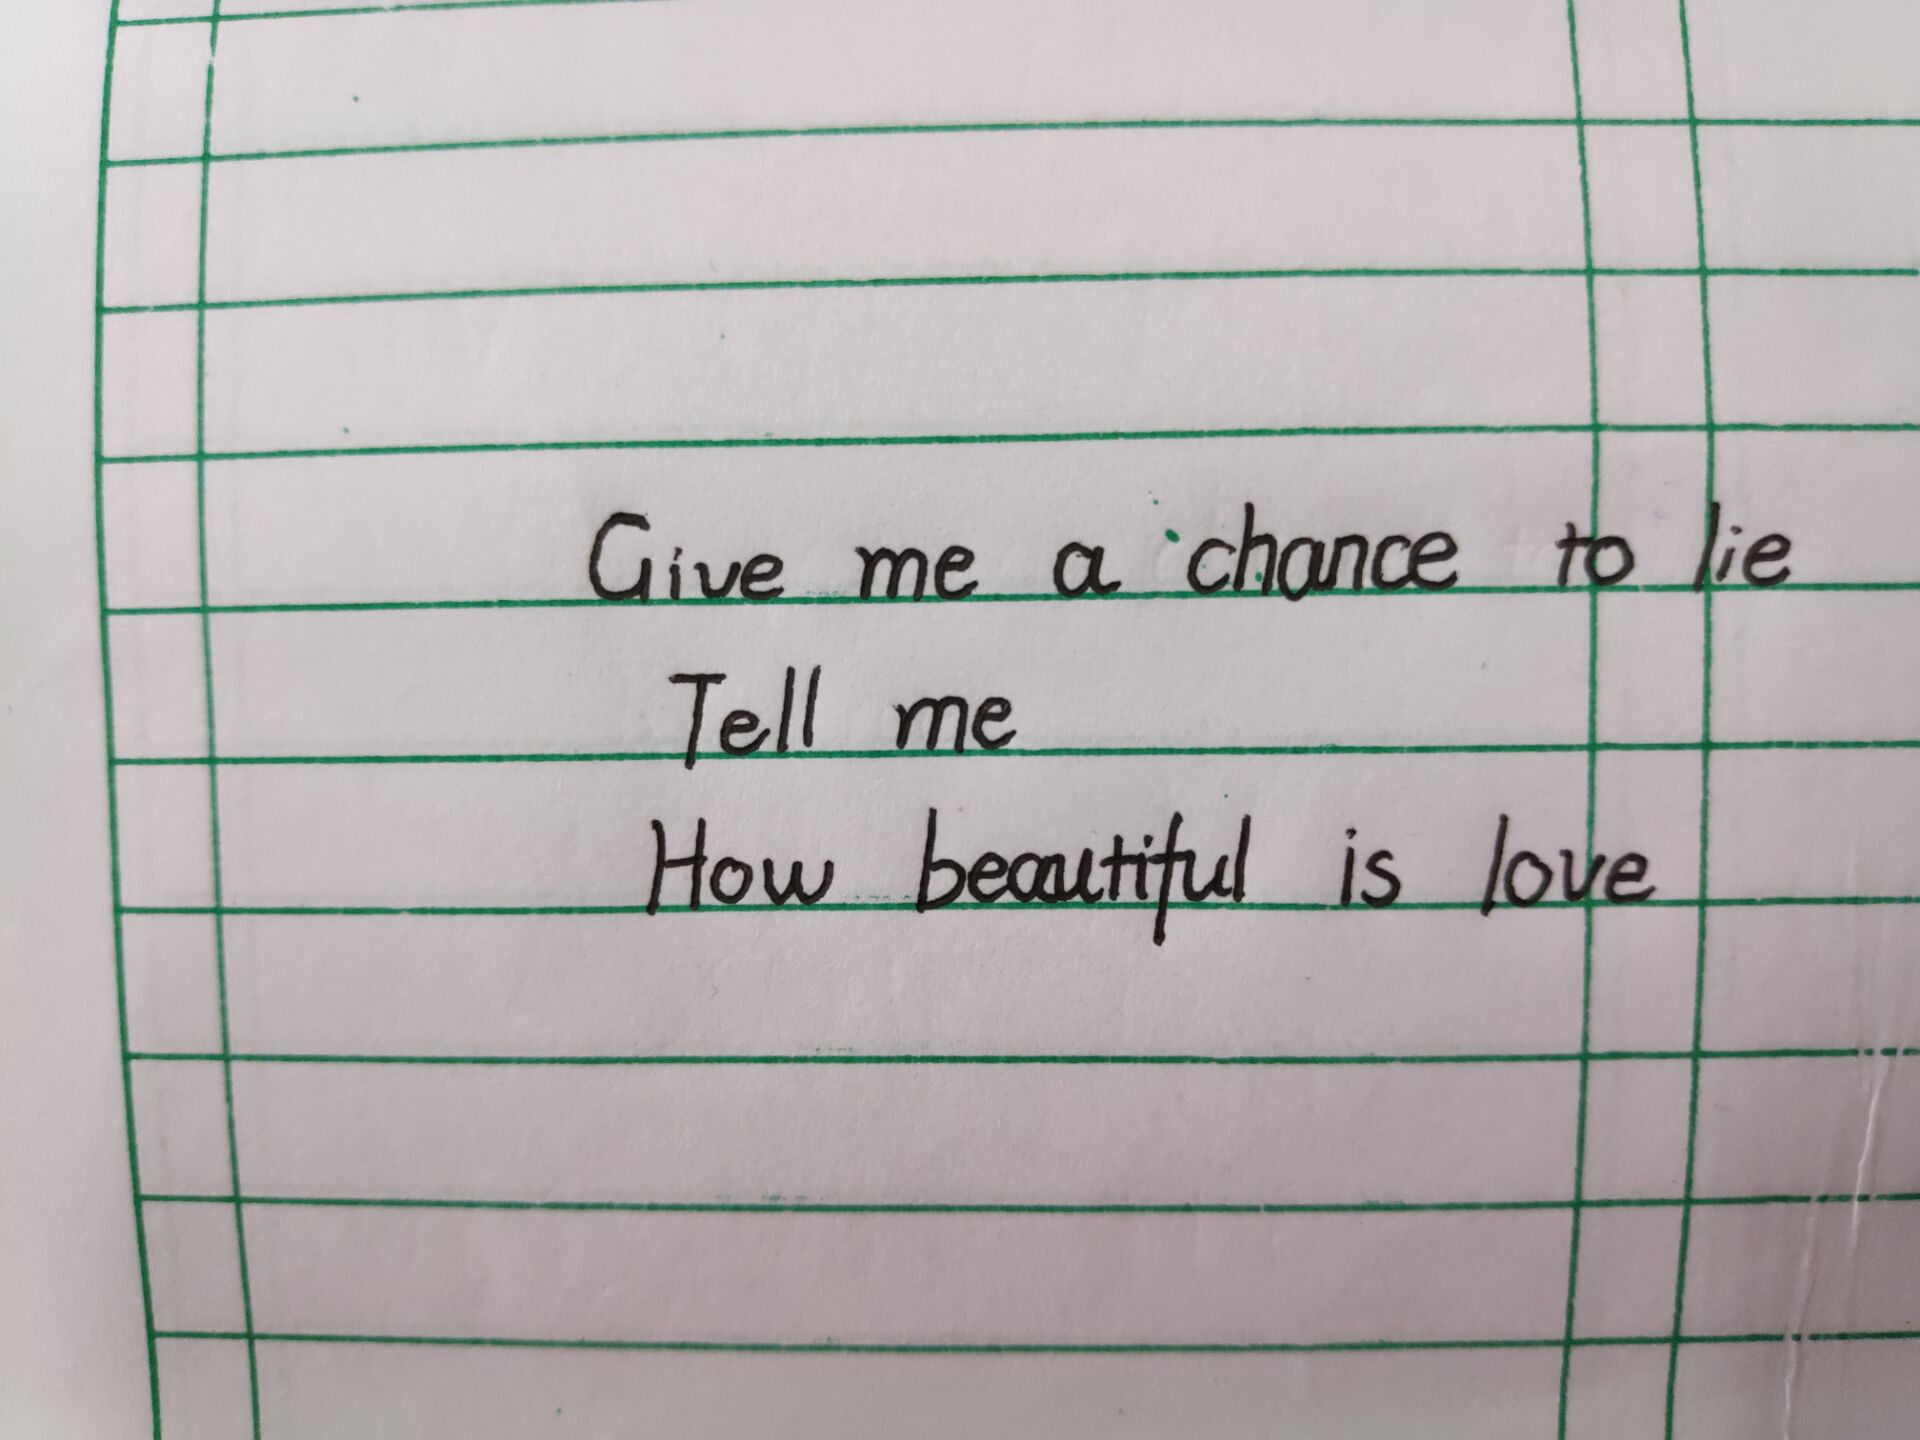 Give me a chance to lie
Tell me
How beautiful is love